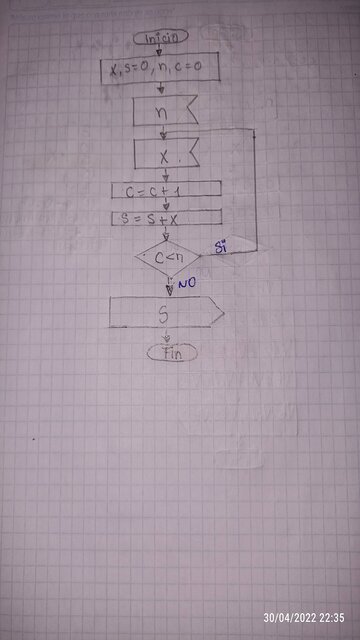 Inicio
X, S=0, n, C=0
n
X.
C = C + 1
S = S + X
C < n
Si
NO
S
Fin
30/04/2022 22:35